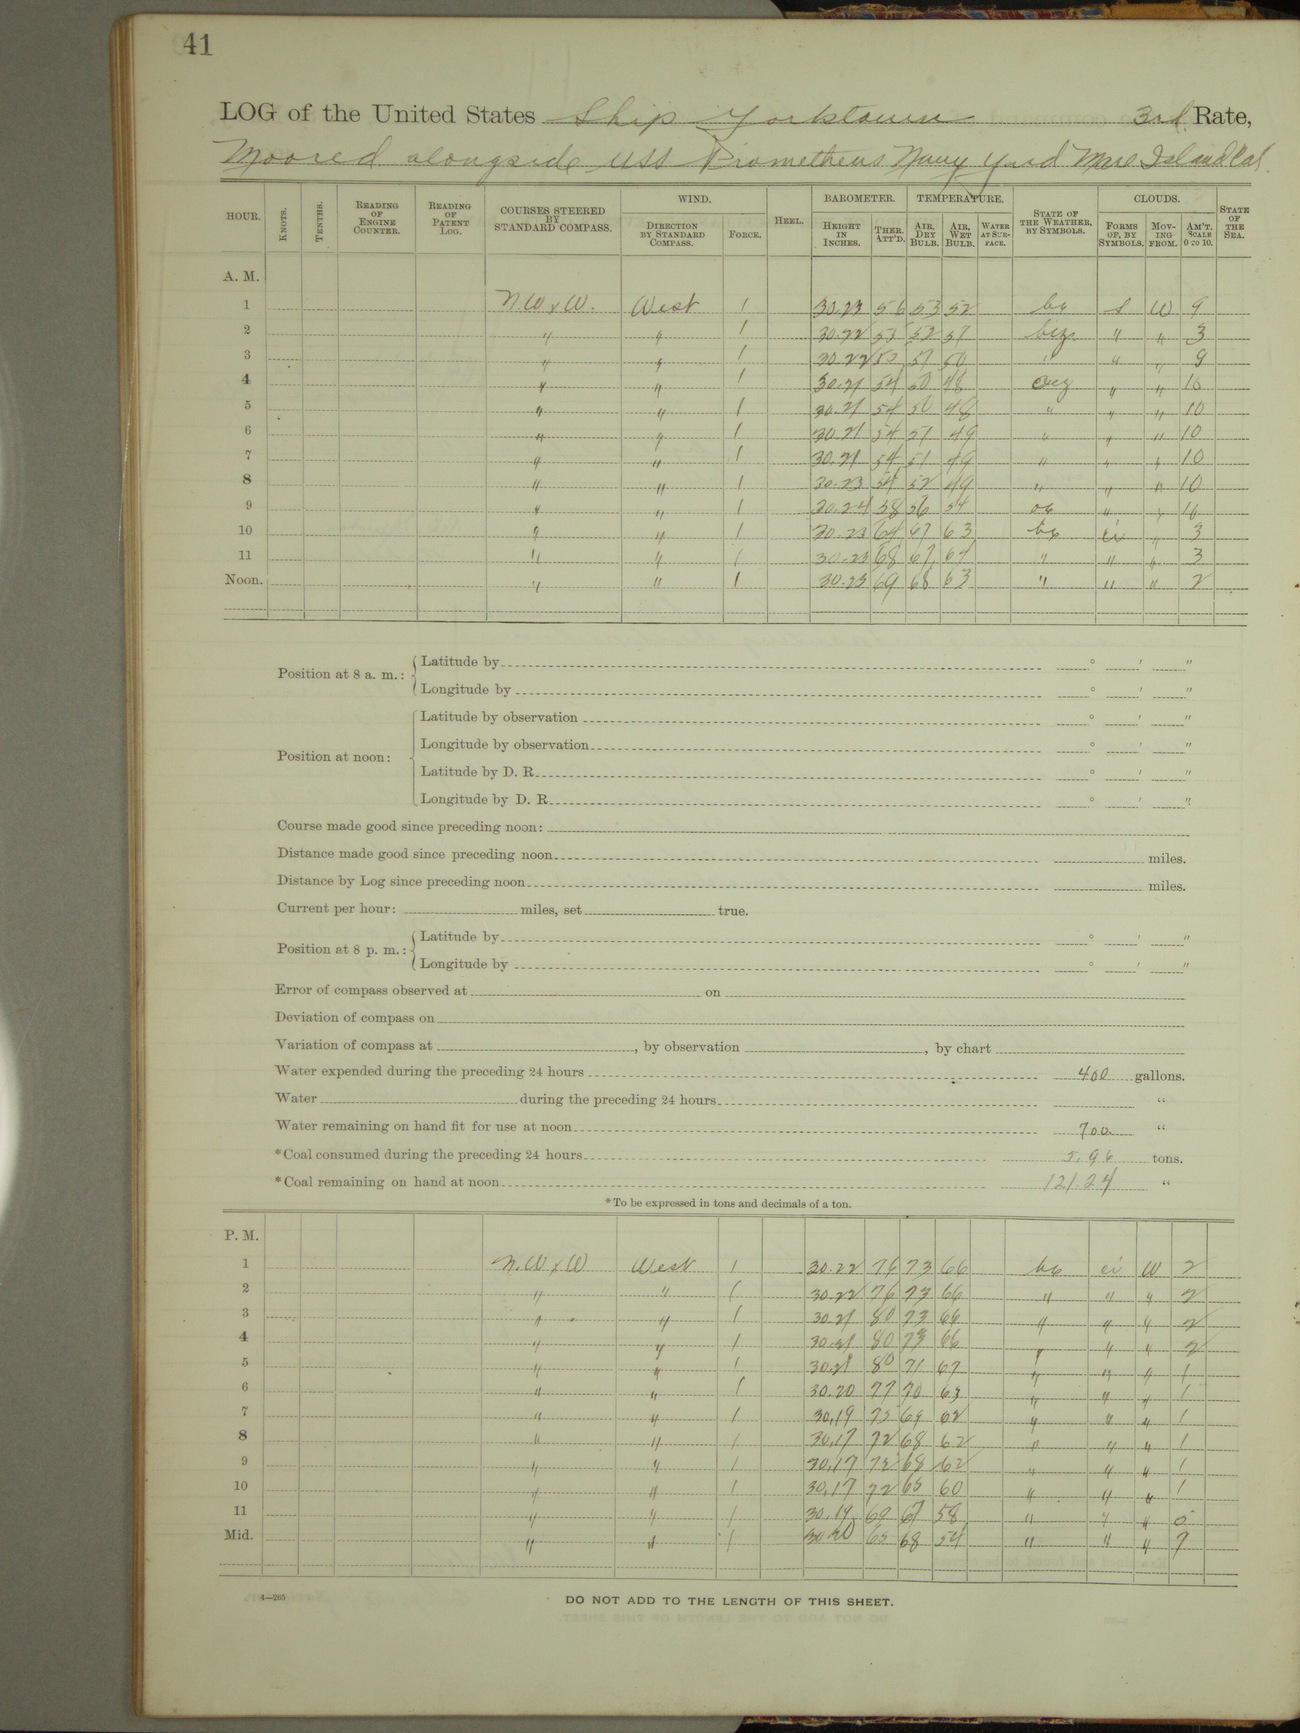 41
LOG of the United States Ship Yorktown 3rd Rate,
Moored alongside USS Prometheus Navy Yard Mare Island Cal.
HOUR. KNOTS. TENTHS. READING OF ENGINE COUNTER. READING OF PATENT LOG. COURSES STEERED BY STANDARD COMPASS. WIND. DIRECTION BY STANDARD COMPASS. FORCE. HEEL. BAROMETER. HEIGHT IN INCHES. THER. ATT'D. TEMPERATURE. AIR, DRY BULB. AIR, WET BULB. WATER AT SURFACE. STATE OF THE WEATHER, BY SYMBOLS. CLOUDS. FORMS OF, BY SYMBOLS. MOVING FROM. AM'T. SCALE 0 TO 10. STATE OF THE SEA.
A. M.
1 N.W x W. West 1 30.23 56 53 52 bc s W 9
2 " " 1 30.22 53 52 51 bcz " " 3
3 " " 1 30.22 51 50 " " " 9
4 " " 1 30.21 54 50 48 ocz " " 10
5 " " 1 30.21 54 50 48 " " " 10
6 " " 1 30.21 54 51 49 " " " 10
7 " " 1 30.21 54 51 49 " " " 10
8 " " 1 30.23 54 52 49 " " " 10
9 " " 1 30.24 58 56 54 oc " " 10
10 " " 1 30.23 64 67 63 bc ci " 3
11 " " 1 30.23 68 67 64 " " " 3
Noon. " " 1 30.23 69 68 63 " " " 2
Position at 8 a. m.: Latitude by ° ' "
Longitude by ° ' "
Position at noon: Latitude by observation ° ' "
Longitude by observation ° ' "
Latitude by D. R. ° ' "
Longitude by D. R. ° ' "
Course made good since preceding noon:
Distance made good since preceding noon miles.
Distance by Log since preceding noon miles.
Current per hour: miles, set true.
Position at 8 p. m.: Latitude by ° ' "
Longitude by ° ' "
Error of compass observed at on
Deviation of compass on
Variation of compass at , by observation , by chart
Water expended during the preceding 24 hours 400 gallons.
Water during the preceding 24 hours "
Water remaining on hand fit for use at noon 700 "
*Coal consumed during the preceding 24 hours 5.96 tons.
*Coal remaining on hand at noon 121.24 "
*To be expressed in tons and decimals of a ton.
P. M.
1 N.W x W West 1 30.22 76 73 66 bc ci W 2
2 " " 1 30.22 76 73 66 " " " 2
3 " " 1 30.21 80 73 66 " " " 2
4 " " 1 30.21 80 73 66 " " " 2
5 " " 1 30.21 80 71 67 " " " 1
6 " " 1 30.20 77 70 63 " " " 1
7 " " 1 30.19 75 69 62 " " " 1
8 " " 1 30.17 72 68 62 " " " 1
9 " " 1 30.17 72 68 62 " " " 1
10 " " 1 30.17 72 65 60 " " " 1
11 " " 1 30.19 69 61 58 " " " 0
Mid. " " 1 30.20 65 68 54 " " " 7
4—265
DO NOT ADD TO THE LENGTH OF THIS SHEET.